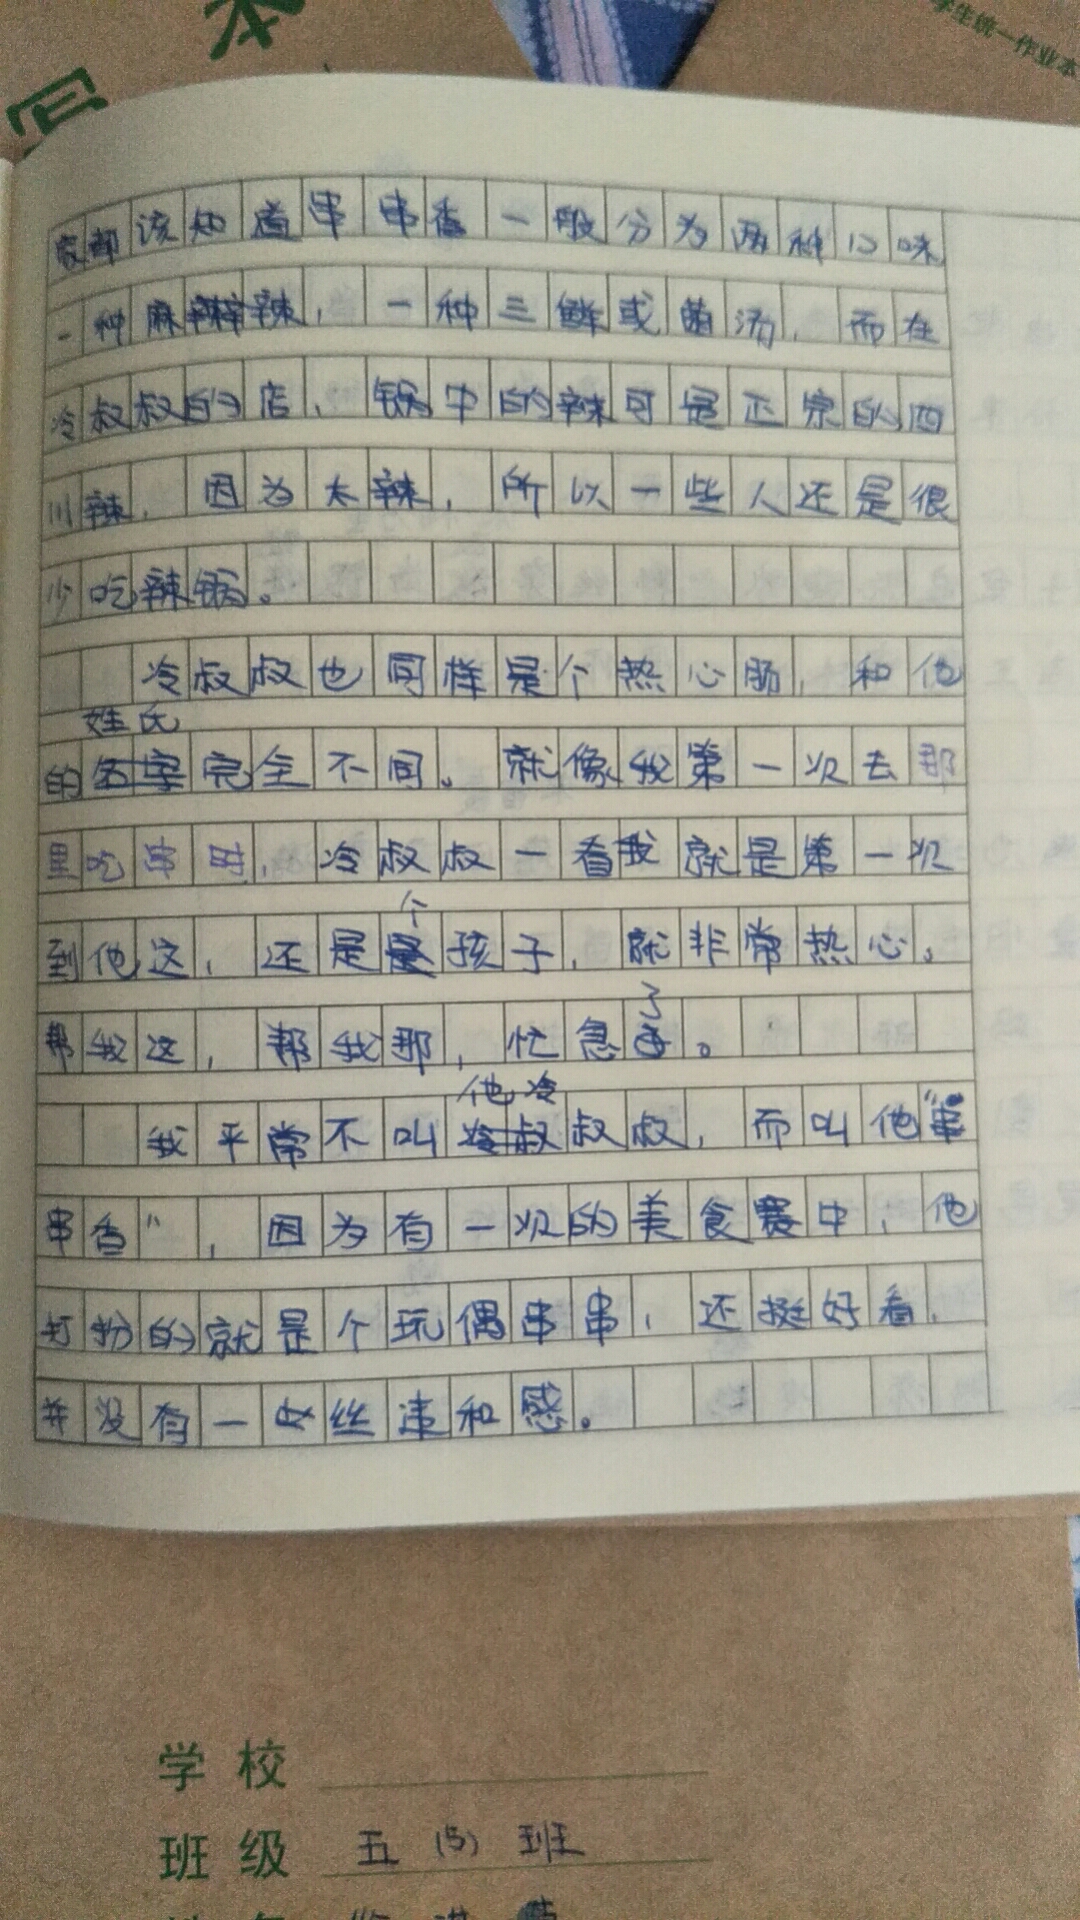 本
学生统一作业本
家都该知道串串香一般分为两种口味
一种麻辣,一种三鲜或菌汤,而在
冷叔叔的店,锅中的辣可是正宗的四
川辣,因为太辣,所以一些人还是很
少吃辣锅。
冷叔叔也同样是个热心肠,和他
姓氏
的名字完全不同。就像我第一次去那
里吃串时,冷叔叔一看我就是第一次
个
到他这,还是孩子,就非常热心。
了
帮我这,帮我那,忙急。
他冷
我平常不叫冷叔叔叔,而叫他“串
串香”,因为有一次的美食赛中,他
打扮的就是个玩偶串串,还挺好看,
并没有一丝违和感。
学校
班级 五(5)班